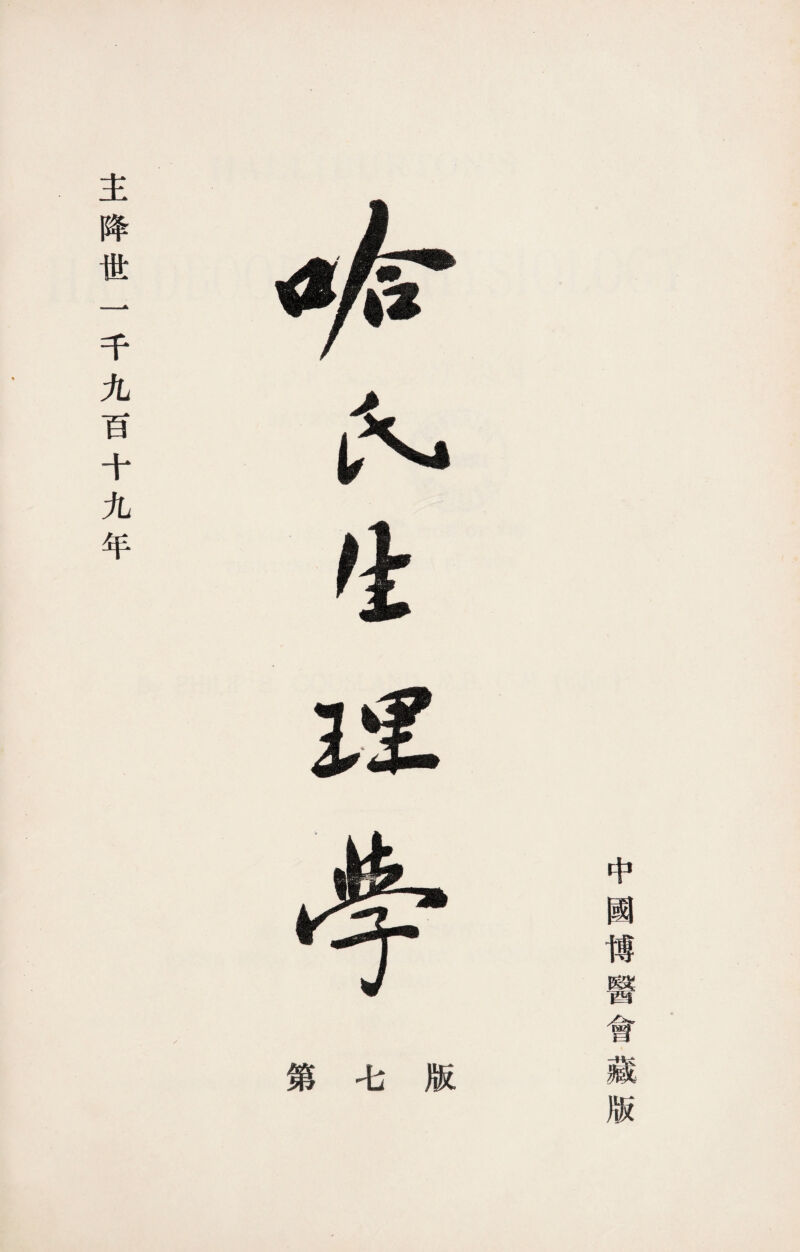 主降世一千九百十九年
哈氏生理學
第七版
中國博醫會藏版